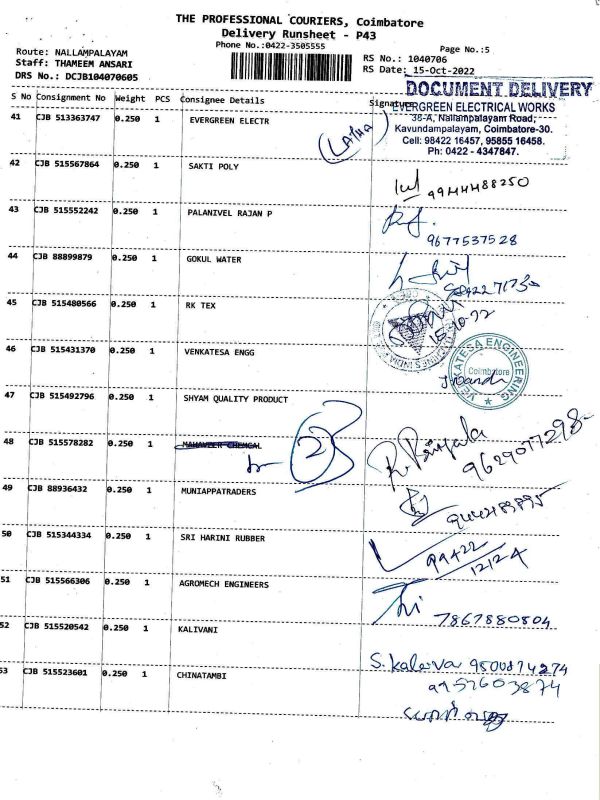 THE PROFESSIONAL COURIERS, Coimbatore
Delivery Runsheet - P43
Phone No.:0422-3505555
Page No.:5
Route: NALLAMPALAYAM
Staff: THAMEEM ANSARI
DRS No.: DCJB104070605
RS No.: 1040706
RS Date: 15-Oct-2022
DOCUMENT DELIVERY
S No Consignment No Weight PCS Consignee Details Signature
EVERGREEN ELECTRICAL WORKS
38-A, Nallampalayam Road,
Kavundampalayam, Coimbatore-30.
Cell: 98422 16457, 95855 16458.
Ph: 0422 - 4347847.
41 CJB 513363747 0.250 1 EVERGREEN ELECTR
(LATHA)
42 CJB 515567864 0.250 1 SAKTI POLY
9944488250
43 CJB 515552242 0.250 1 PALANIVEL RAJAN P
9677537528
44 CJB 88899879 0.250 1 GOKUL WATER
45 CJB 515480566 0.250 1 RK TEX
15-10-22
46 CJB 515431370 0.250 1 VENKATESA ENGG
VENKATESA ENGINEERING
Coimbatore
47 CJB 515492796 0.250 1 SHYAM QUALITY PRODUCT
23
R. Priyala
9629077298
48 CJB 515578282 0.250 1 MAHAVEER CHEMICAL
49 CJB 88936432 0.250 1 MUNIAPPATRADERS
50 CJB 515344334 0.250 1 SRI HARINI RUBBER
99422
12124
51 CJB 515566306 0.250 1 AGROMECH ENGINEERS
7867880804
52 CJB 515520542 0.250 1 KALIVANI
53 CJB 515523601 0.250 1 CHINATAMBI